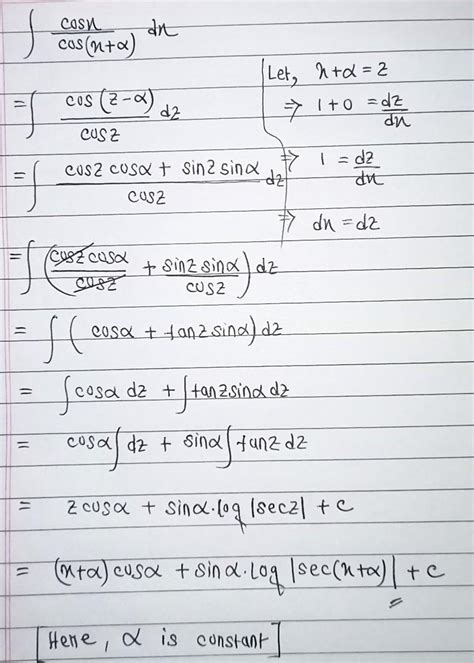 ∫ cosx / cos(x+α) dx
Let, x+α = z
⇒ 1+0 = dz/dx
⇒ 1 = dz/dx
⇒ dx = dz
= ∫ cos(z-α) / cosz dz
= ∫ (cosz cosα + sinz sinα) / cosz dz
= ∫ (cosz cosα / cosz + sinz sinα / cosz) dz
= ∫ (cosα + tanz sinα) dz
= ∫ cosα dz + ∫ tanz sinα dz
= cosα ∫ dz + sinα ∫ tanz dz
= z cosα + sinα·log |secz| + c
= (x+α) cosα + sinα·log |sec(x+α)| + c
[Here, α is constant]